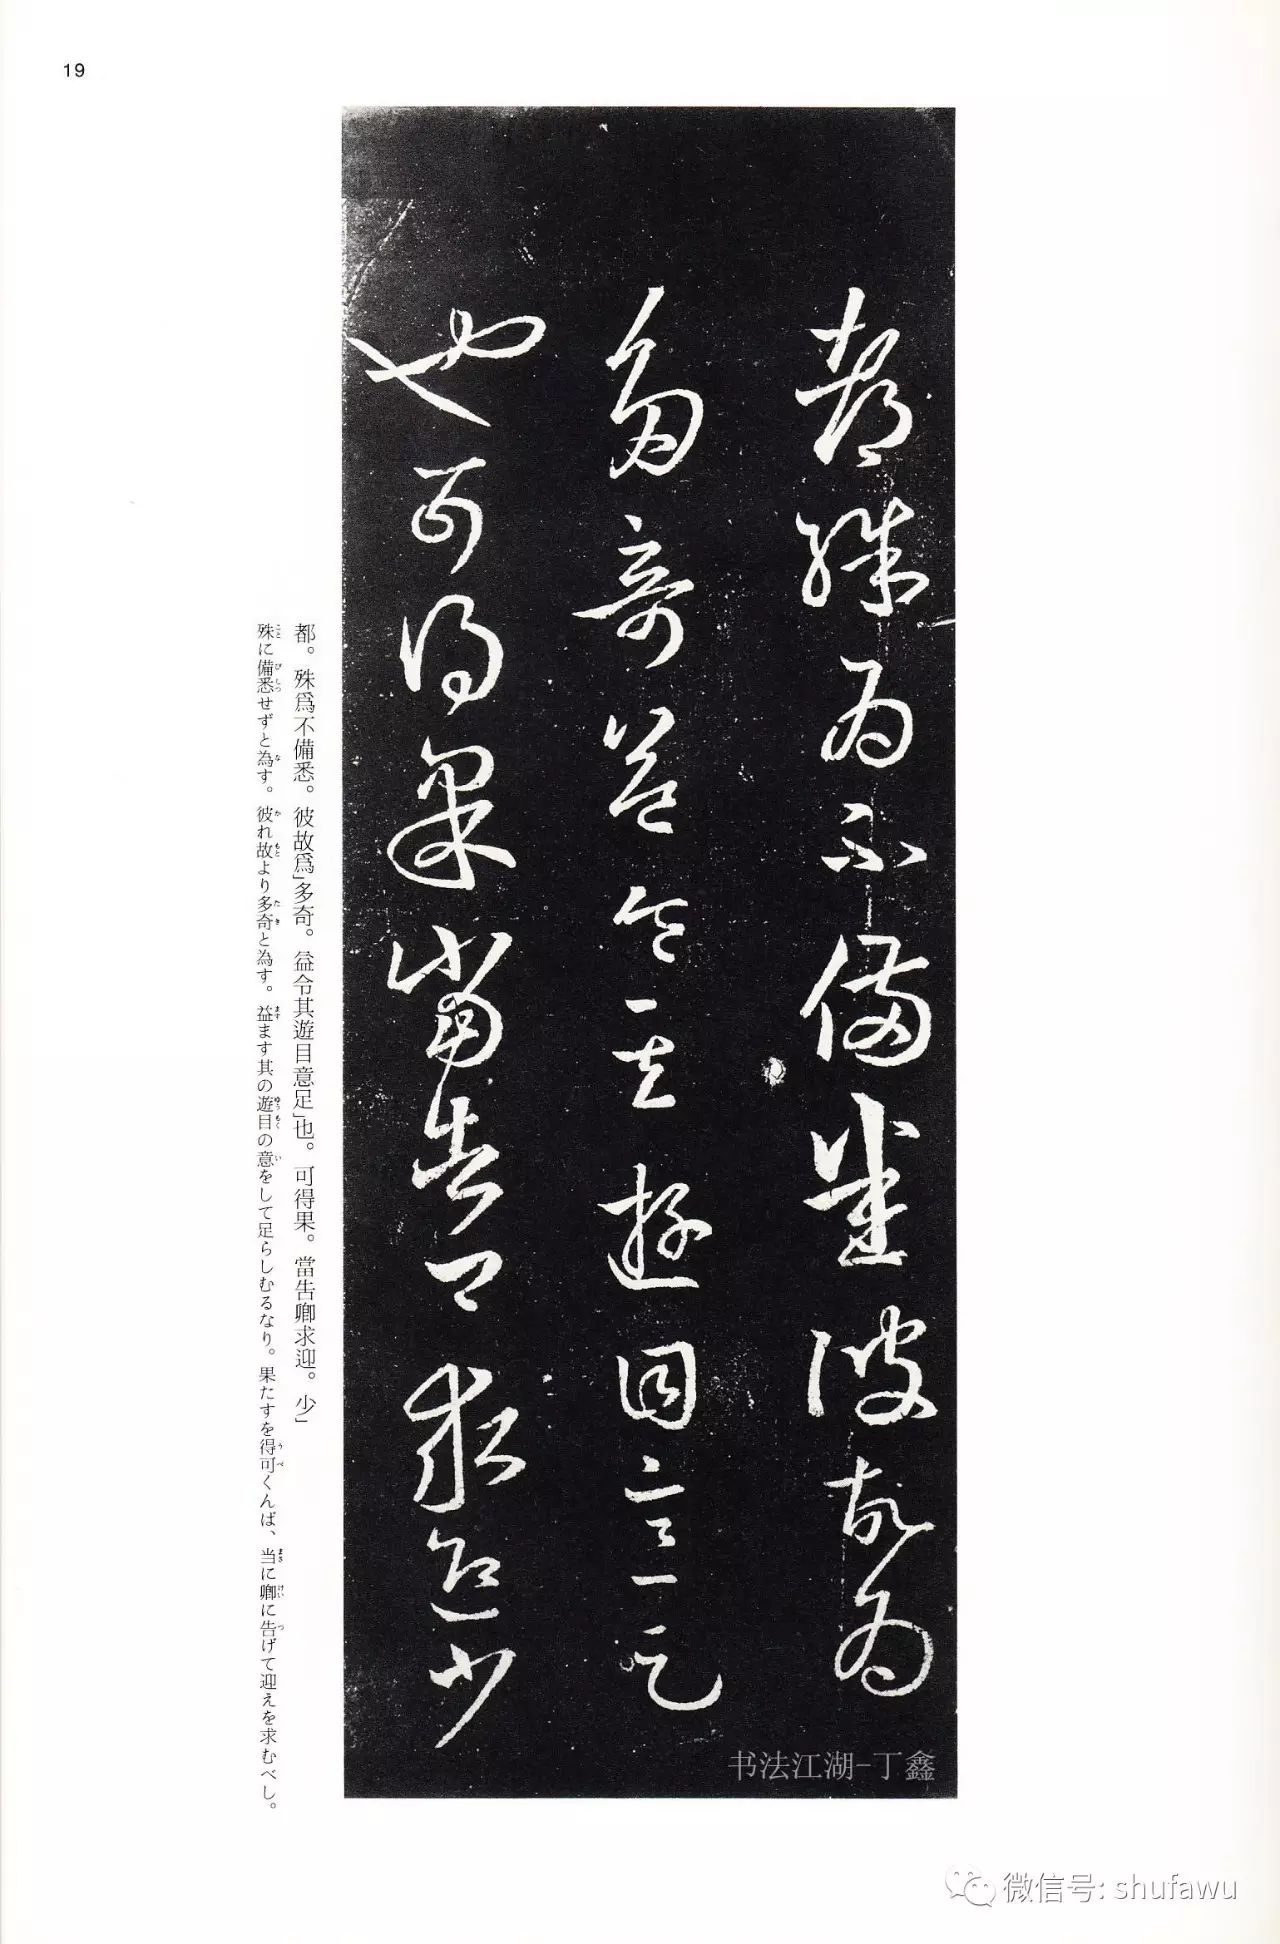 19
都殊為不備悉彼故為
多奇益令其遊目意足
也可得果當告卿求迎少
都。殊爲不備悉。彼故爲」多奇。益令其遊目意足」也。可得果。當告卿求迎。少」
殊に備悉せずと為す。彼れ故より多奇と為す。益ます其の遊目の意をして足らしむるなり。果たすを得可くんば、当に卿に告げて迎えを求むべし。
书法江湖-丁鑫
微信号: shufawu